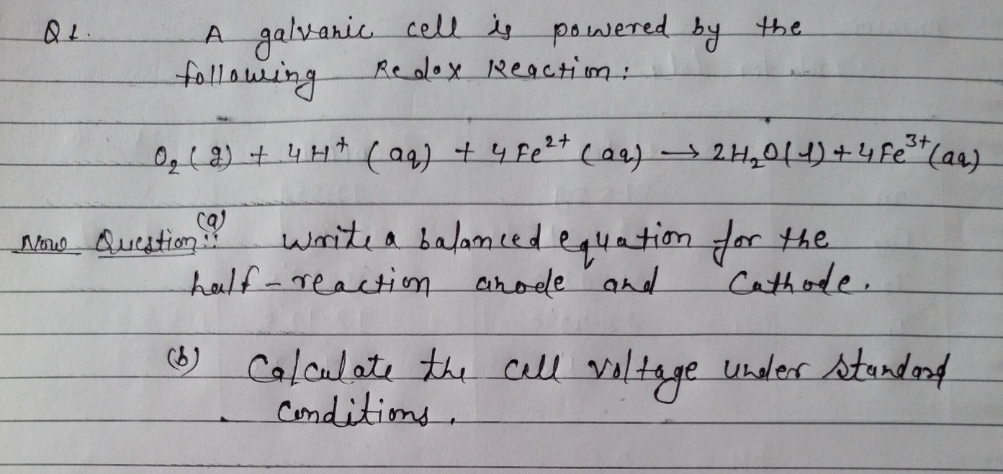 Q1. A galvanic cell is powered by the
following Redox Reaction:
O₂(g) + 4H⁺ (aq) + 4Fe²⁺ (aq) → 2H₂O(l) + 4Fe³⁺(aq)
Now Question:: (a) Write a balanced equation for the
half-reaction anode and Cathode.
(b) Calculate the cell voltage under standard
Conditions.